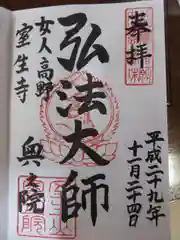 奉拝
平成二十九年
十一月二十四日
弘法大師
女人高野
室生寺
奥之院